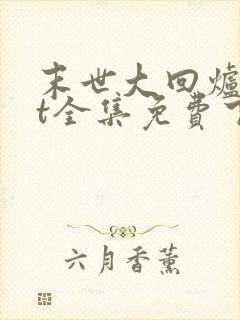 末世大回爐
t全集免費
六月香薰